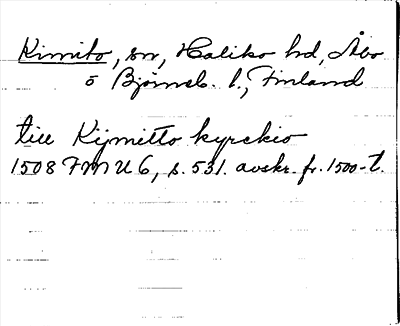 Kimito, sn, Halikko hd, Åbo
o Björneb. l., Finland
till Kijmitto kyrckio
1508 FMU 6, s. 531. avskr. fr. 1500-t.